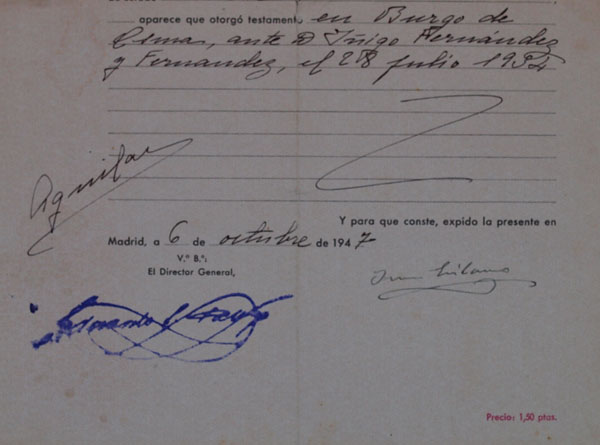 aparece que otorgó testamento en Burgo de
Osma, ante D Iñigo Hernández
y Fernandez, el 28 julio 1932
Aguilar
Y para que conste, expido la presente en
Madrid, a 6 de octubre de 1947
V.° B.°:
El Director General,
Precio: 1,50 ptas.